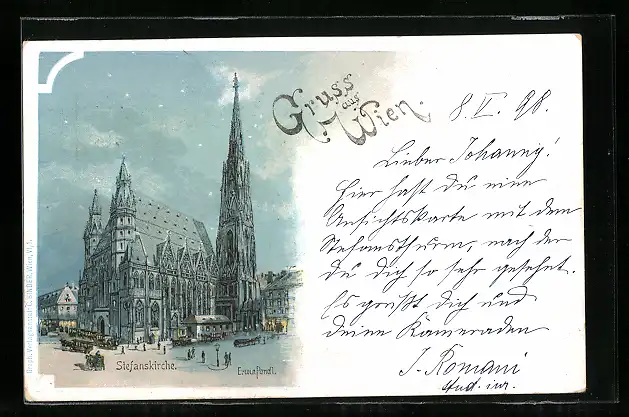 Gruss
aus
Wien.
8. V. 98.
Lieber Johanny!
Hier hast du eine
Ansichtskarte mit dem
Stefansthurm, nach der
du dich so sehr gesehnt.
Es grüßt dich und
deine Kameraden
J. Romani
stud. iur.
Stefanskirche.